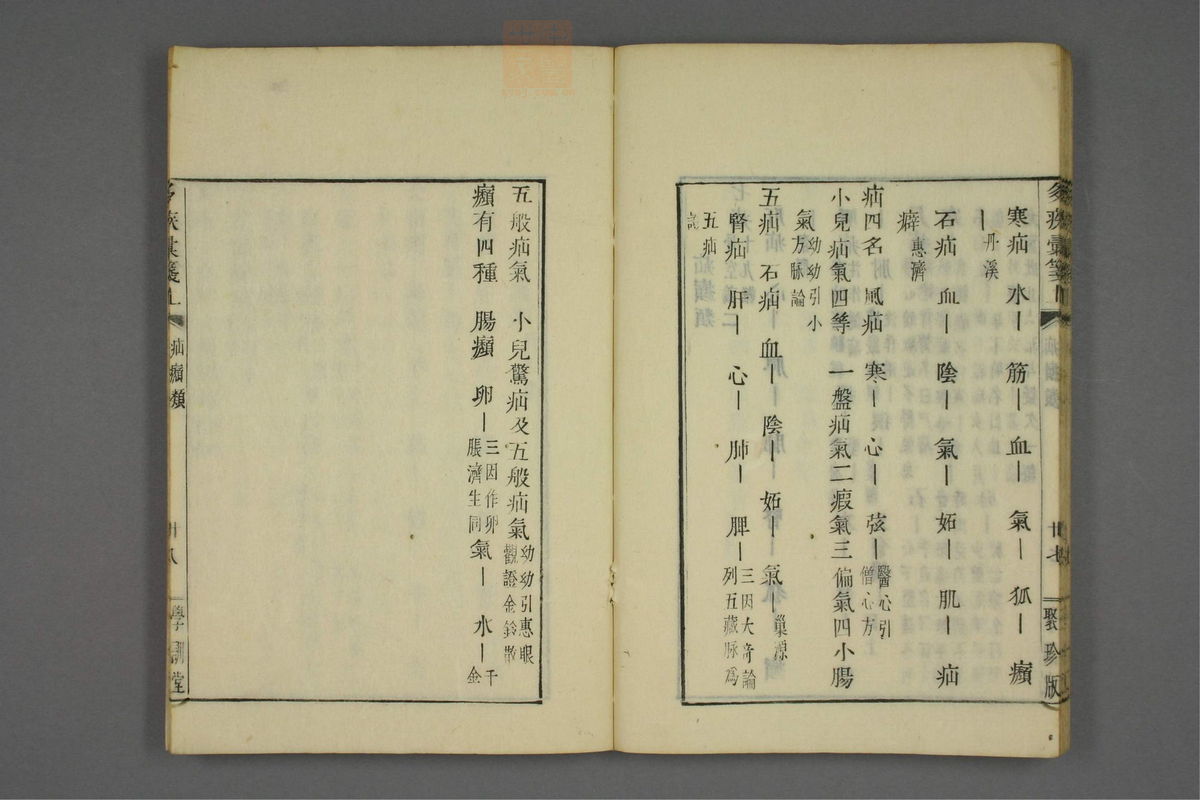 寒疝 水― 筋― 血― 氣― 狐― 癩
― 丹溪
石疝 血― 陰― 氣― 妬― 肌― 疝
癖 惠濟
疝四名 風疝 寒― 心― 弦― 醫心引僧心方
小兒疝氣四等 一盤疝氣二瘕氣三偏氣四小腸
氣 幼幼引小方脉論
五疝 石疝 血― 陰― 妬― 氣― 巢源
腎疝 肝― 心― 肺― 脾― 三因大奇論列五藏脉爲
五疝
疝癩類
廿七
聚珍版
五般疝氣 小兒驚疝及五般疝氣 幼幼引惠眼觀證金鈴散
癩有四種 腸癩 卵― 三因作卵脹濟生同 氣― 水― 千金
疝癩類
廿八
學訓堂